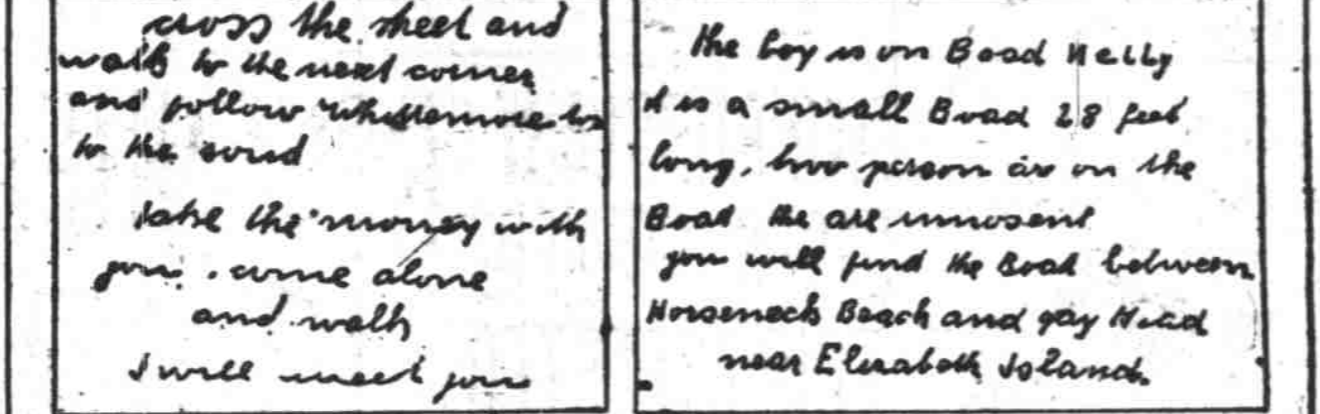 cross the street and
walk to the next corner
and follow whittemore
to the soud
take the money with
you. come alone
and walk
I will meet you
the boy is on Boad Nelly
it is a small Boad 28 feet
long, two person are on the
Boad. the are innosent
you will find the Boad between
Horseneck Beach and gay Head
near Elizabeth Island.